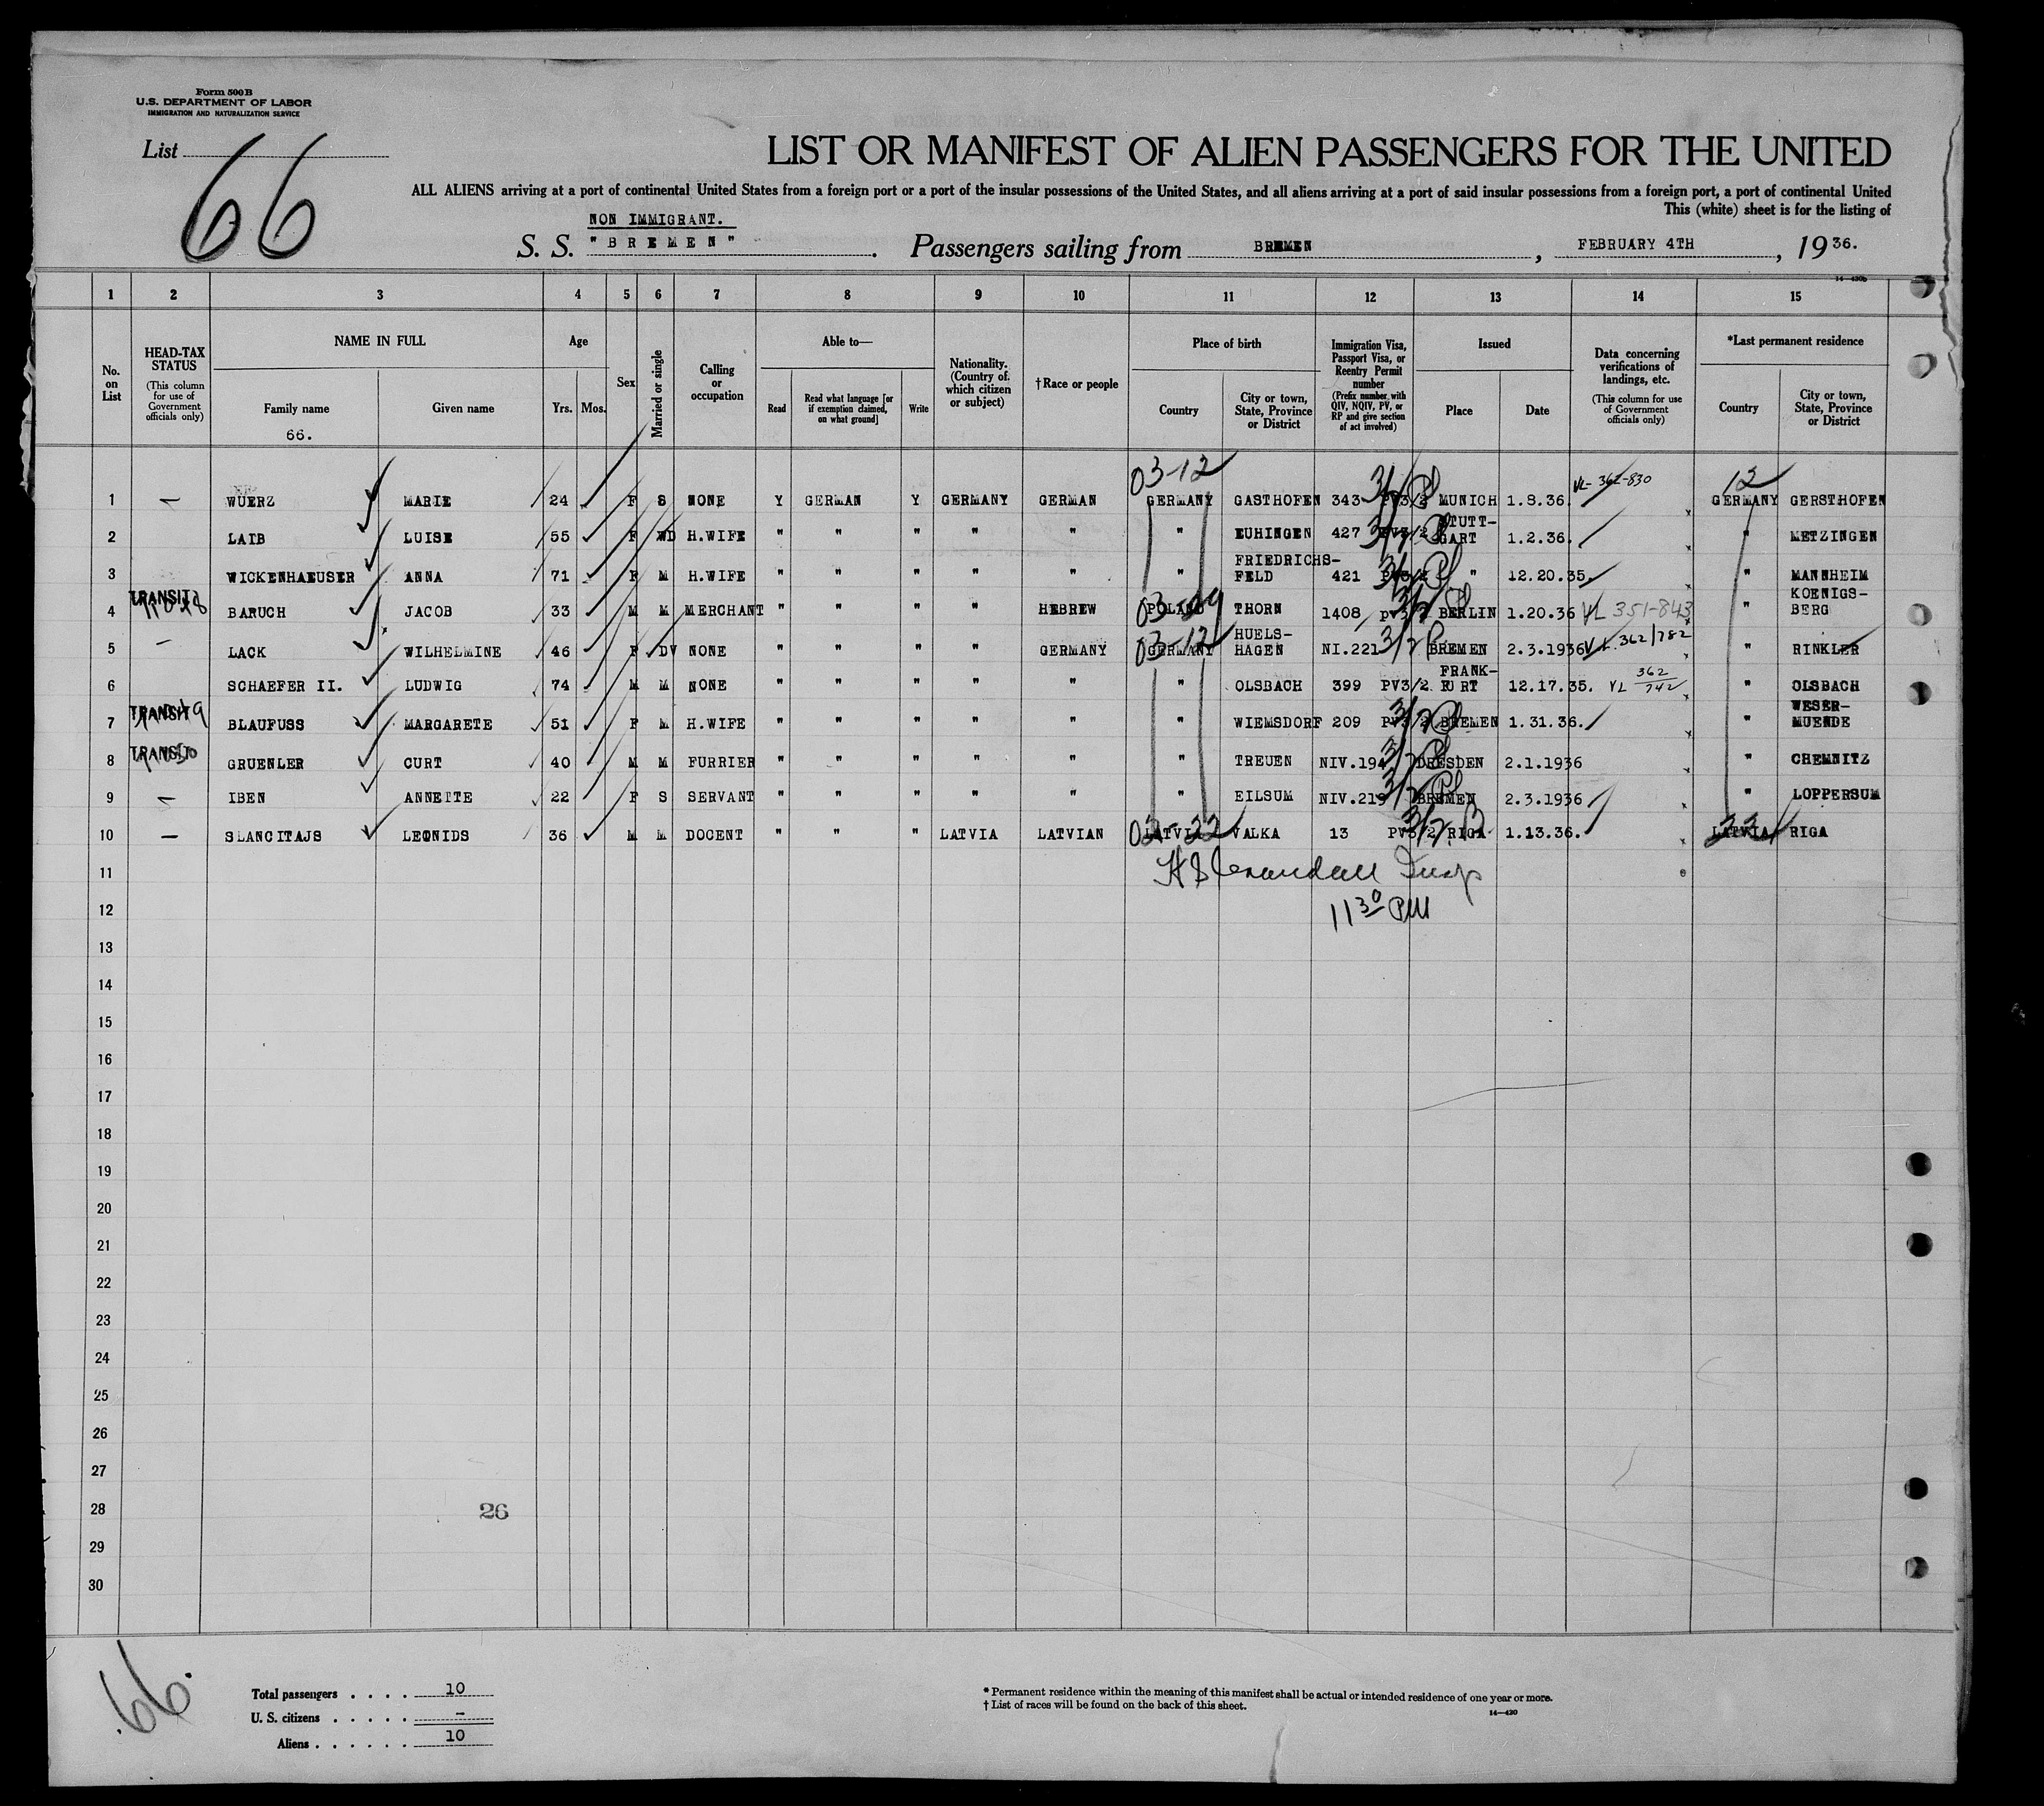 Form 500B
U.S. DEPARTMENT OF LABOR
IMMIGRATION AND NATURALIZATION SERVICE
List 66
LIST OR MANIFEST OF ALIEN PASSENGERS FOR THE UNITED
ALL ALIENS arriving at a port of continental United States from a foreign port or a port of the insular possessions of the United States, and all aliens arriving at a port of said insular possessions from a foreign port, a port of continental United
This (white) sheet is for the listing of
NON IMMIGRANT.
S. S. "BREMEN". Passengers sailing from BREMEN, FEBRUARY 4TH, 1936.
14—420b
1 2 3 4 5 6 7 8 9 10 11 12 13 14 15
No. on List
HEAD-TAX STATUS (This column for use of Government officials only)
NAME IN FULL
Family name
Given name
66.
Age
Yrs. Mos.
Sex
Married or single
Calling or occupation
Able to—
Read
Read what language [or if exemption claimed, on what ground]
Write
Nationality. (Country of which citizen or subject)
†Race or people
Place of birth
Country
City or town, State, Province or District
Immigration Visa, Passport Visa, or Reentry Permit number (Prefix number with QIV, NQIV, PV, or RP and give section of act involved)
Issued
Place
Date
Data concerning verifications of landings, etc. (This column for use of Government officials only)
*Last permanent residence
Country
City or town, State, Province or District
03-12 12
1 — WUERZ MARIE 24 F S NONE Y GERMAN Y GERMANY GERMAN GERMANY GASTHOFEN 343 PV3/2 MUNICH 1.8.36. VL-362-830 GERMANY GERSTHOFEN
2 LAIB LUISE 55 F WD H.WIFE " " " " " " EUHINGEN 427 PV3/2 STUTT-GART 1.2.36. " METZINGEN
3 WICKENHAEUSER ANNA 71 F M H.WIFE " " " " " " FRIEDRICHS-FELD 421 PV3/2 " 12.20.35. " MANNHEIM
4 TRANSIT BARUCH JACOB 33 M M MERCHANT " " " " HEBREW POLAND THORN 1408 PV3/2 BERLIN 1.20.36 VL 351-843 " KOENIGS-BERG
5 — LACK WILHELMINE 46 F DV NONE " " " " GERMANY 03-12 GERMANY HUELS-HAGEN NI.221 3/2 BREMEN 2.3.1936 VL 362/782 " RINKLER
6 SCHAEFER II. LUDWIG 74 M M NONE " " " " " " OLSBACH 399 PV3/2 FRANK-FURT 12.17.35. VL 362/742 " OLSBACH
7 TRANSIT BLAUFUSS MARGARETE 51 F M H.WIFE " " " " " " WIEMSDORF 209 PV3/2 BREMEN 1.31.36. " WESER-MUENDE
8 TRANSIT GRUENLER CURT 40 M M FURRIER " " " " " " TREUEN NIV.194 DRESDEN 2.1.1936 " CHEMNITZ
9 — IBEN ANNETTE 22 F S SERVANT " " " " " " EILSUM NIV.219 BREMEN 2.3.1936 " LOPPERSUM
10 — SLANCITAJS LEONIDS 36 M M DOCENT " " " LATVIA LATVIAN LATVIA VALKA 13 PV3/2 RIGA 1.13.36. LATVIA RIGA
11
12 11 30 PM
13
14
15
16
17
18
19
20
21
22
23
24
25
26
27
28 26
29
30
66.
Total passengers . . . . 10
U. S. citizens . . . . . –
Aliens . . . . . . 10
* Permanent residence within the meaning of this manifest shall be actual or intended residence of one year or more.
† List of races will be found on the back of this sheet.
14—420